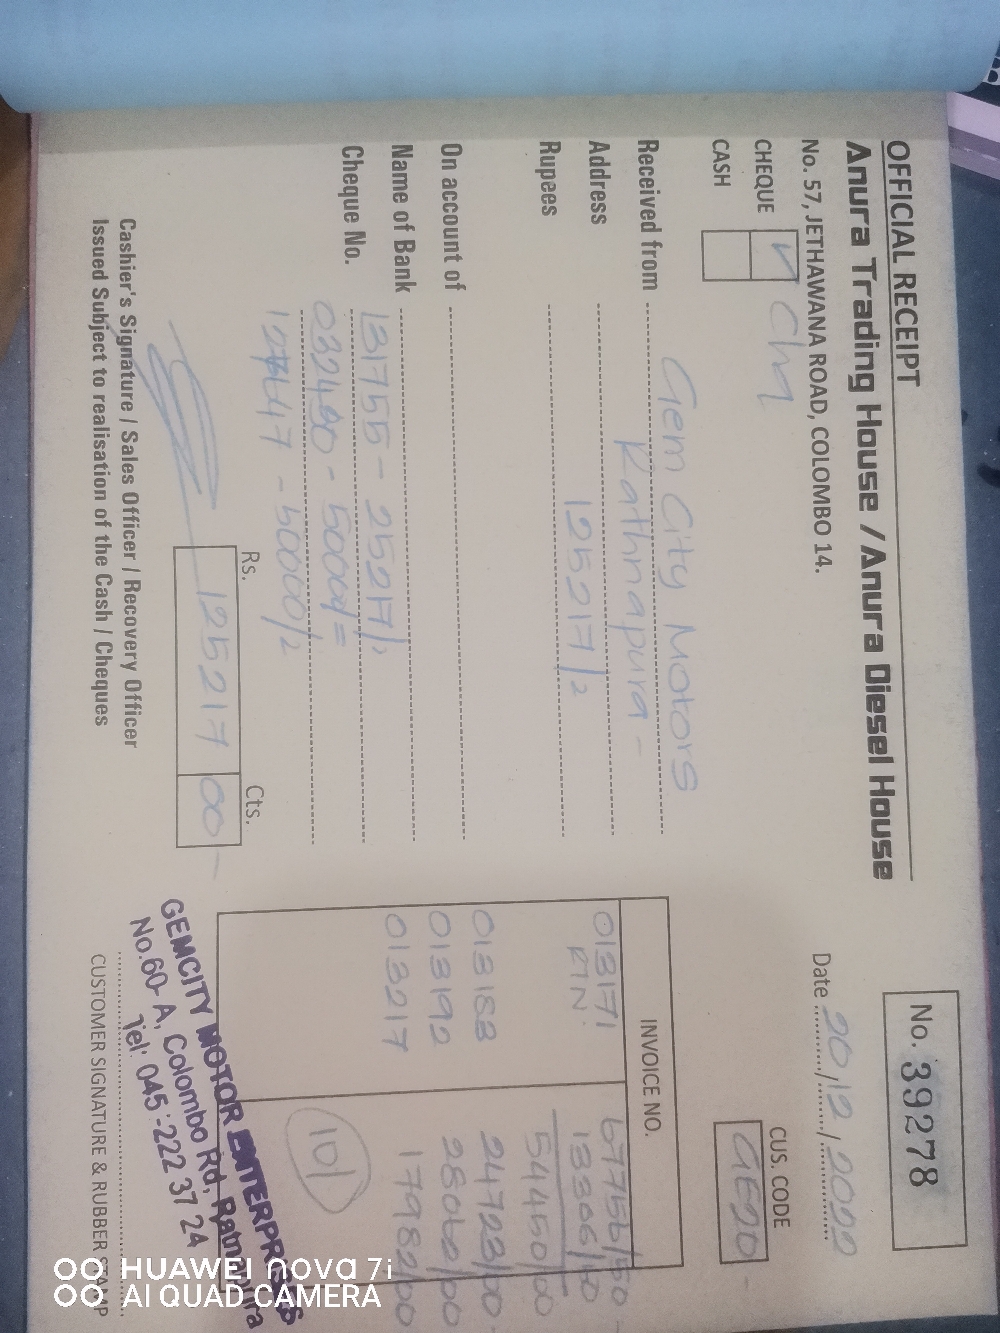 OFFICIAL RECEIPT
Anura Trading House / Anura Diesel House
No. 57, JETHAWANA ROAD, COLOMBO 14.
No. 39278
Date 20/12/2022
CHEQUE
CASH
CUS. CODE
GE20
Received from Gem City Motors
Address Rathnapura -
Rupees 125217/=
On account of
Name of Bank
Cheque No. 131755 - 25217/=
032490 - 50000/=
- 50000/=
INVOICE NO.
013171 67756/50
RTN. 13306/50
54450/00
013188 24723/00
013192 28062/00
013217 17982/00
101
Rs. Cts.
125217 00
Cashier's Signature / Sales Officer / Recovery Officer
Issued Subject to realisation of the Cash / Cheques
CUSTOMER SIGNATURE & RUBBER STAMP
GEMCITY MOTOR ENTERPRISES
No.60-A, Colombo Rd, Ratnapura
Tel: 045-222 37 24
HUAWEI nova 7i
AI QUAD CAMERA